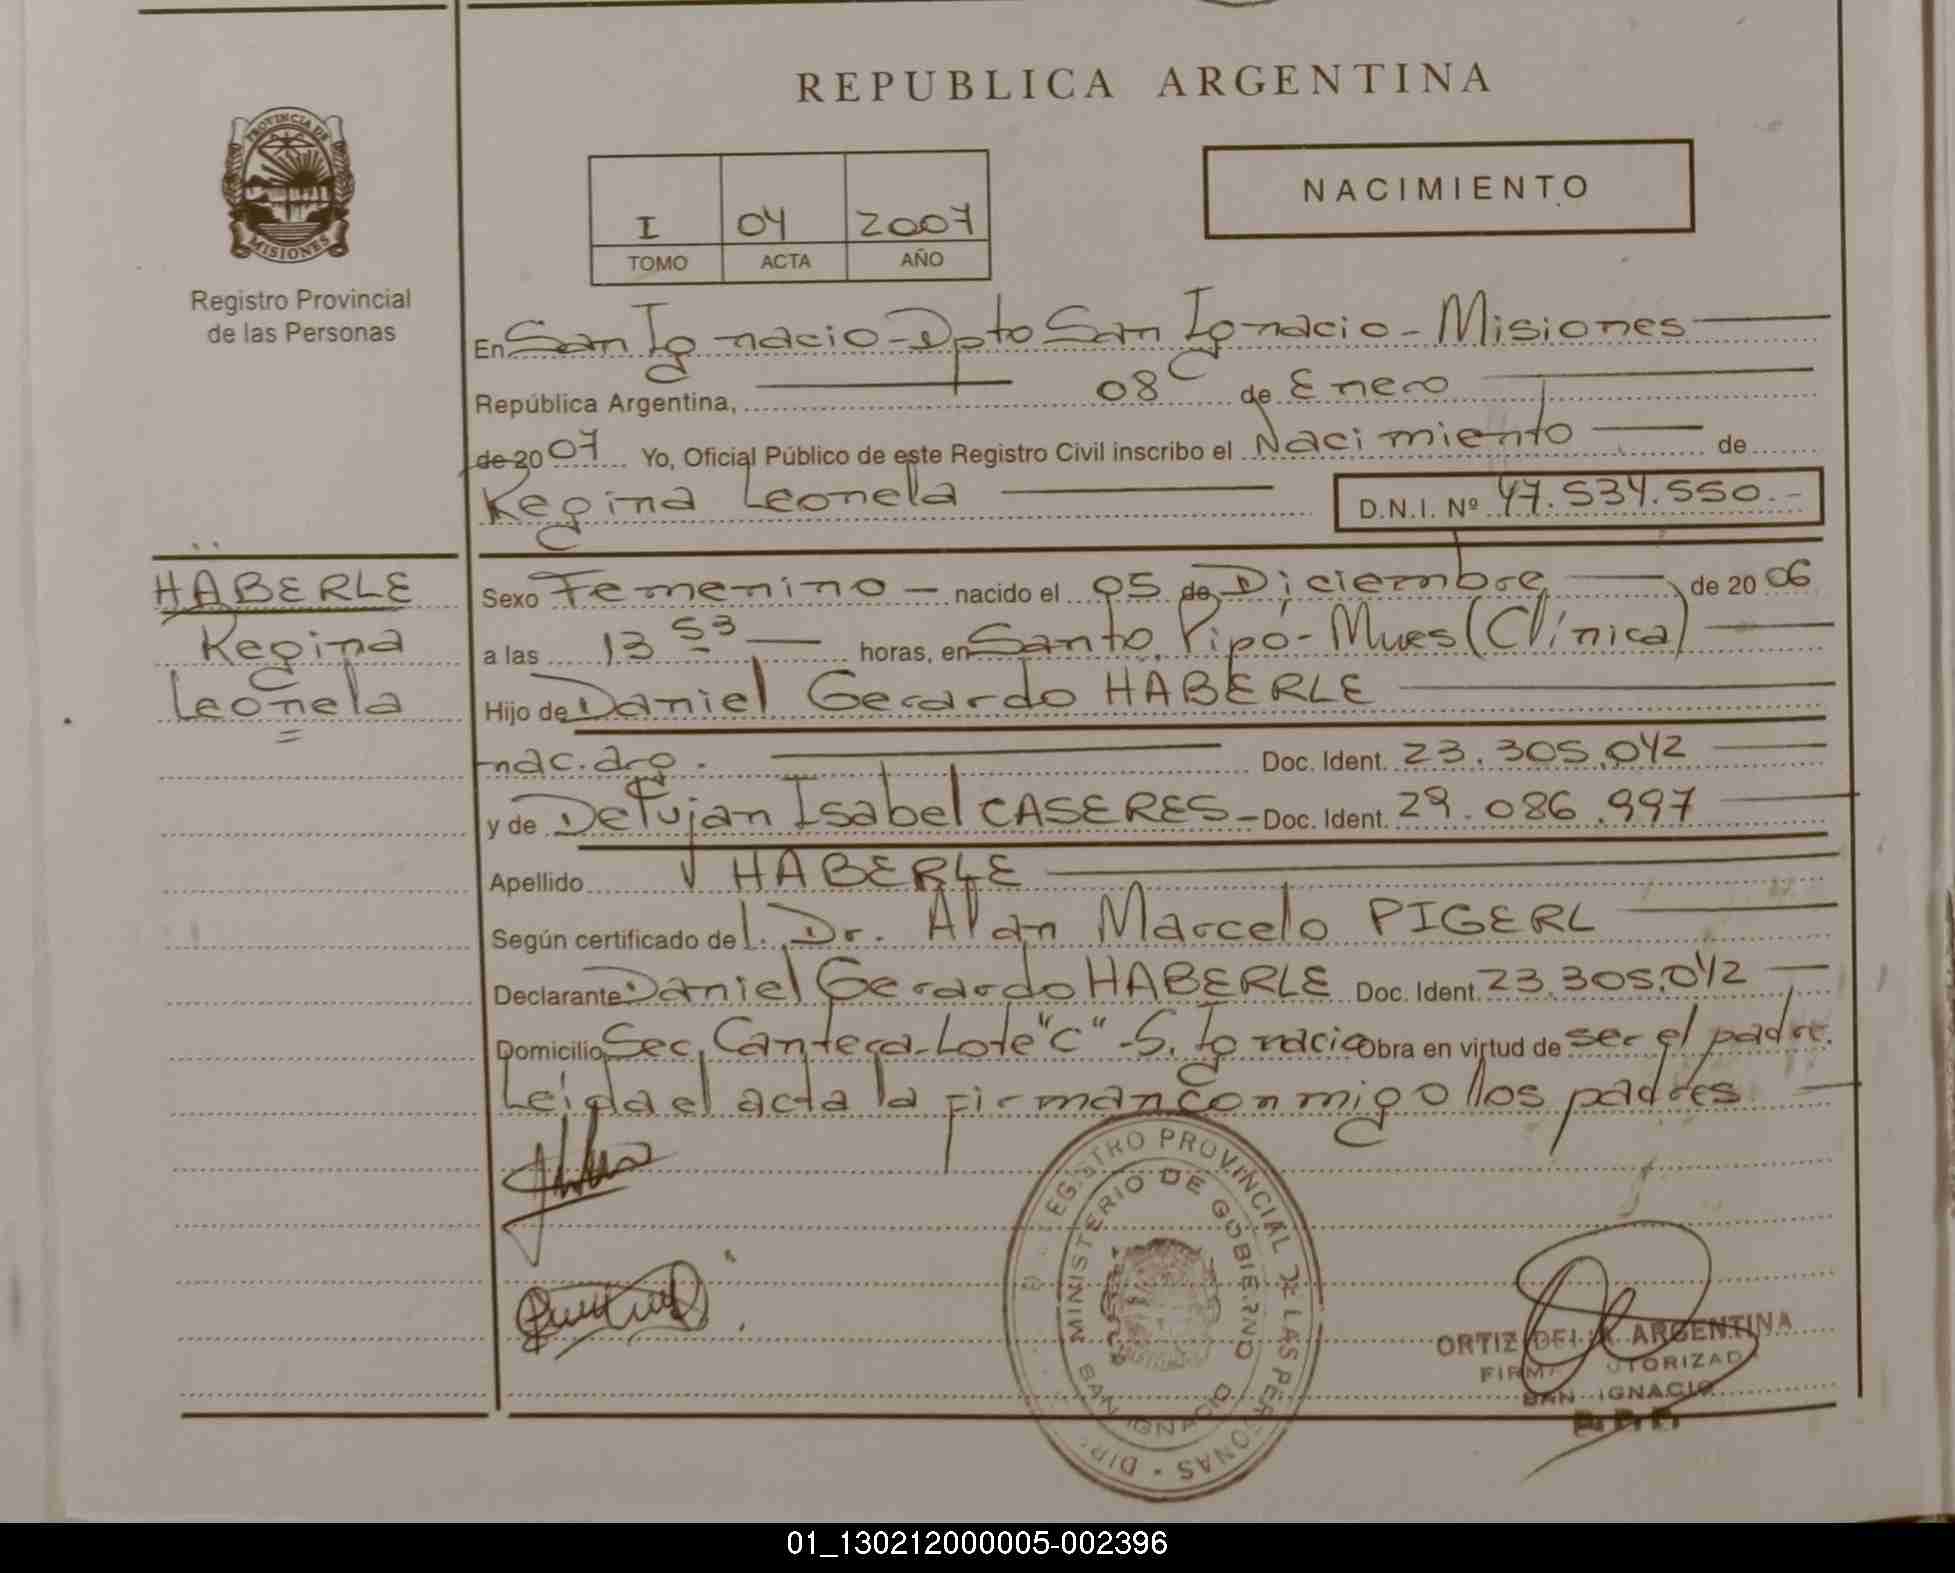 REPUBLICA ARGENTINA
PROVINCIA DE
MISIONES
Registro Provincial
de las Personas
I 04 2007
TOMO ACTA AÑO
NACIMIENTO
En San Ignacio - Dpto San Ignacio - Misiones
República Argentina, 08 de Enero
de 2007 Yo, Oficial Público de este Registro Civil inscribo el Nacimiento de
Regina Leonela D.N.I. Nº 47.534.550.-
HABERLE
Regina
Leonela
Sexo Femenino - nacido el 05 de Diciembre de 2006
a las 13 53 horas, en Santo Pipó - Mues (Clínica)
Hijo de Daniel Gerardo HABERLE
nac. arg. Doc. Ident. 23.305.042
y de Isabel CASERES - Doc. Ident. 29.086.997
Apellido HABERLE
Según certificado del Dr. Alan Marcelo PIGERL
Declarante Daniel Gerardo HABERLE Doc. Ident. 23.305.042
Domicilio Sec. Cantera - Lote "C" - S. Ignacio Obra en virtud de ser el padre.
Leída el acta la firman conmigo los padres
REGISTRO PROVINCIAL DE LAS PERSONAS - DIR.
MINISTERIO DE GOBIERNO
SAN IGNACIO
ORTIZ ARGENTINA
SAN IGNACIO
01_130212000005-002396